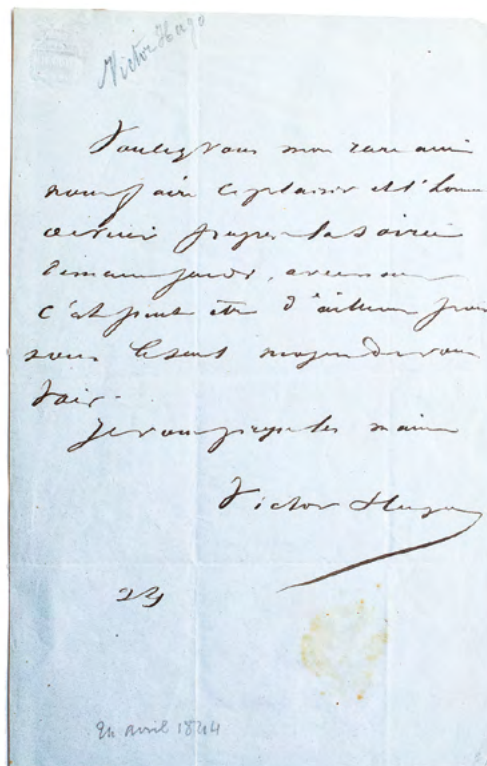 Victor Hugo
Voulez vous mon rare ami
nous faire le plaisir et l'honn
venir passer la soirée
demain jeudi, avec nous
c'est peut être d'ailleurs pour
nous le seul moyen de vous
voir.
Je vous
Victor Hugo
24 avril 1844